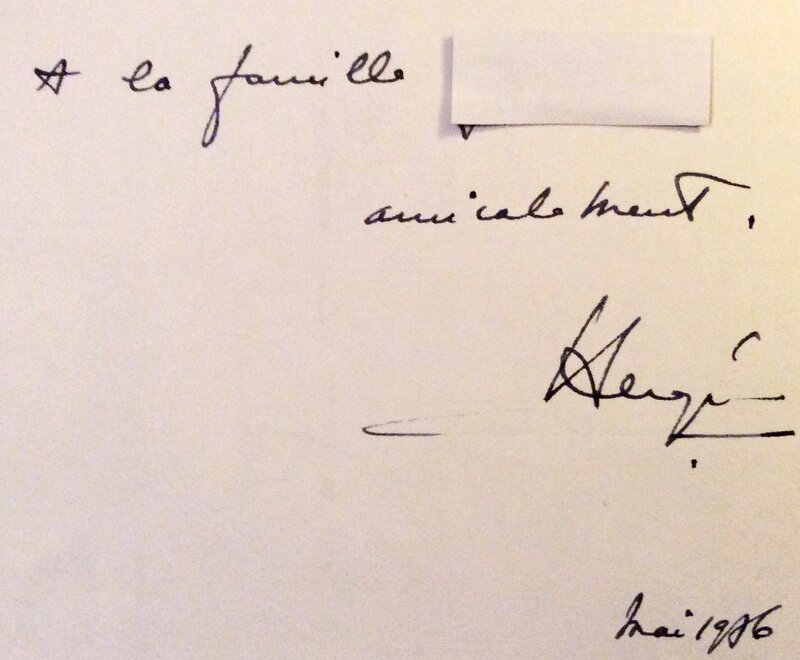 A la famille
amicalement.
Hergé
Mai 1976